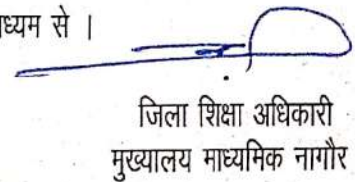 ध्यम से ।
जिला शिक्षा अधिकारी
मुख्यालय माध्यमिक नागौर